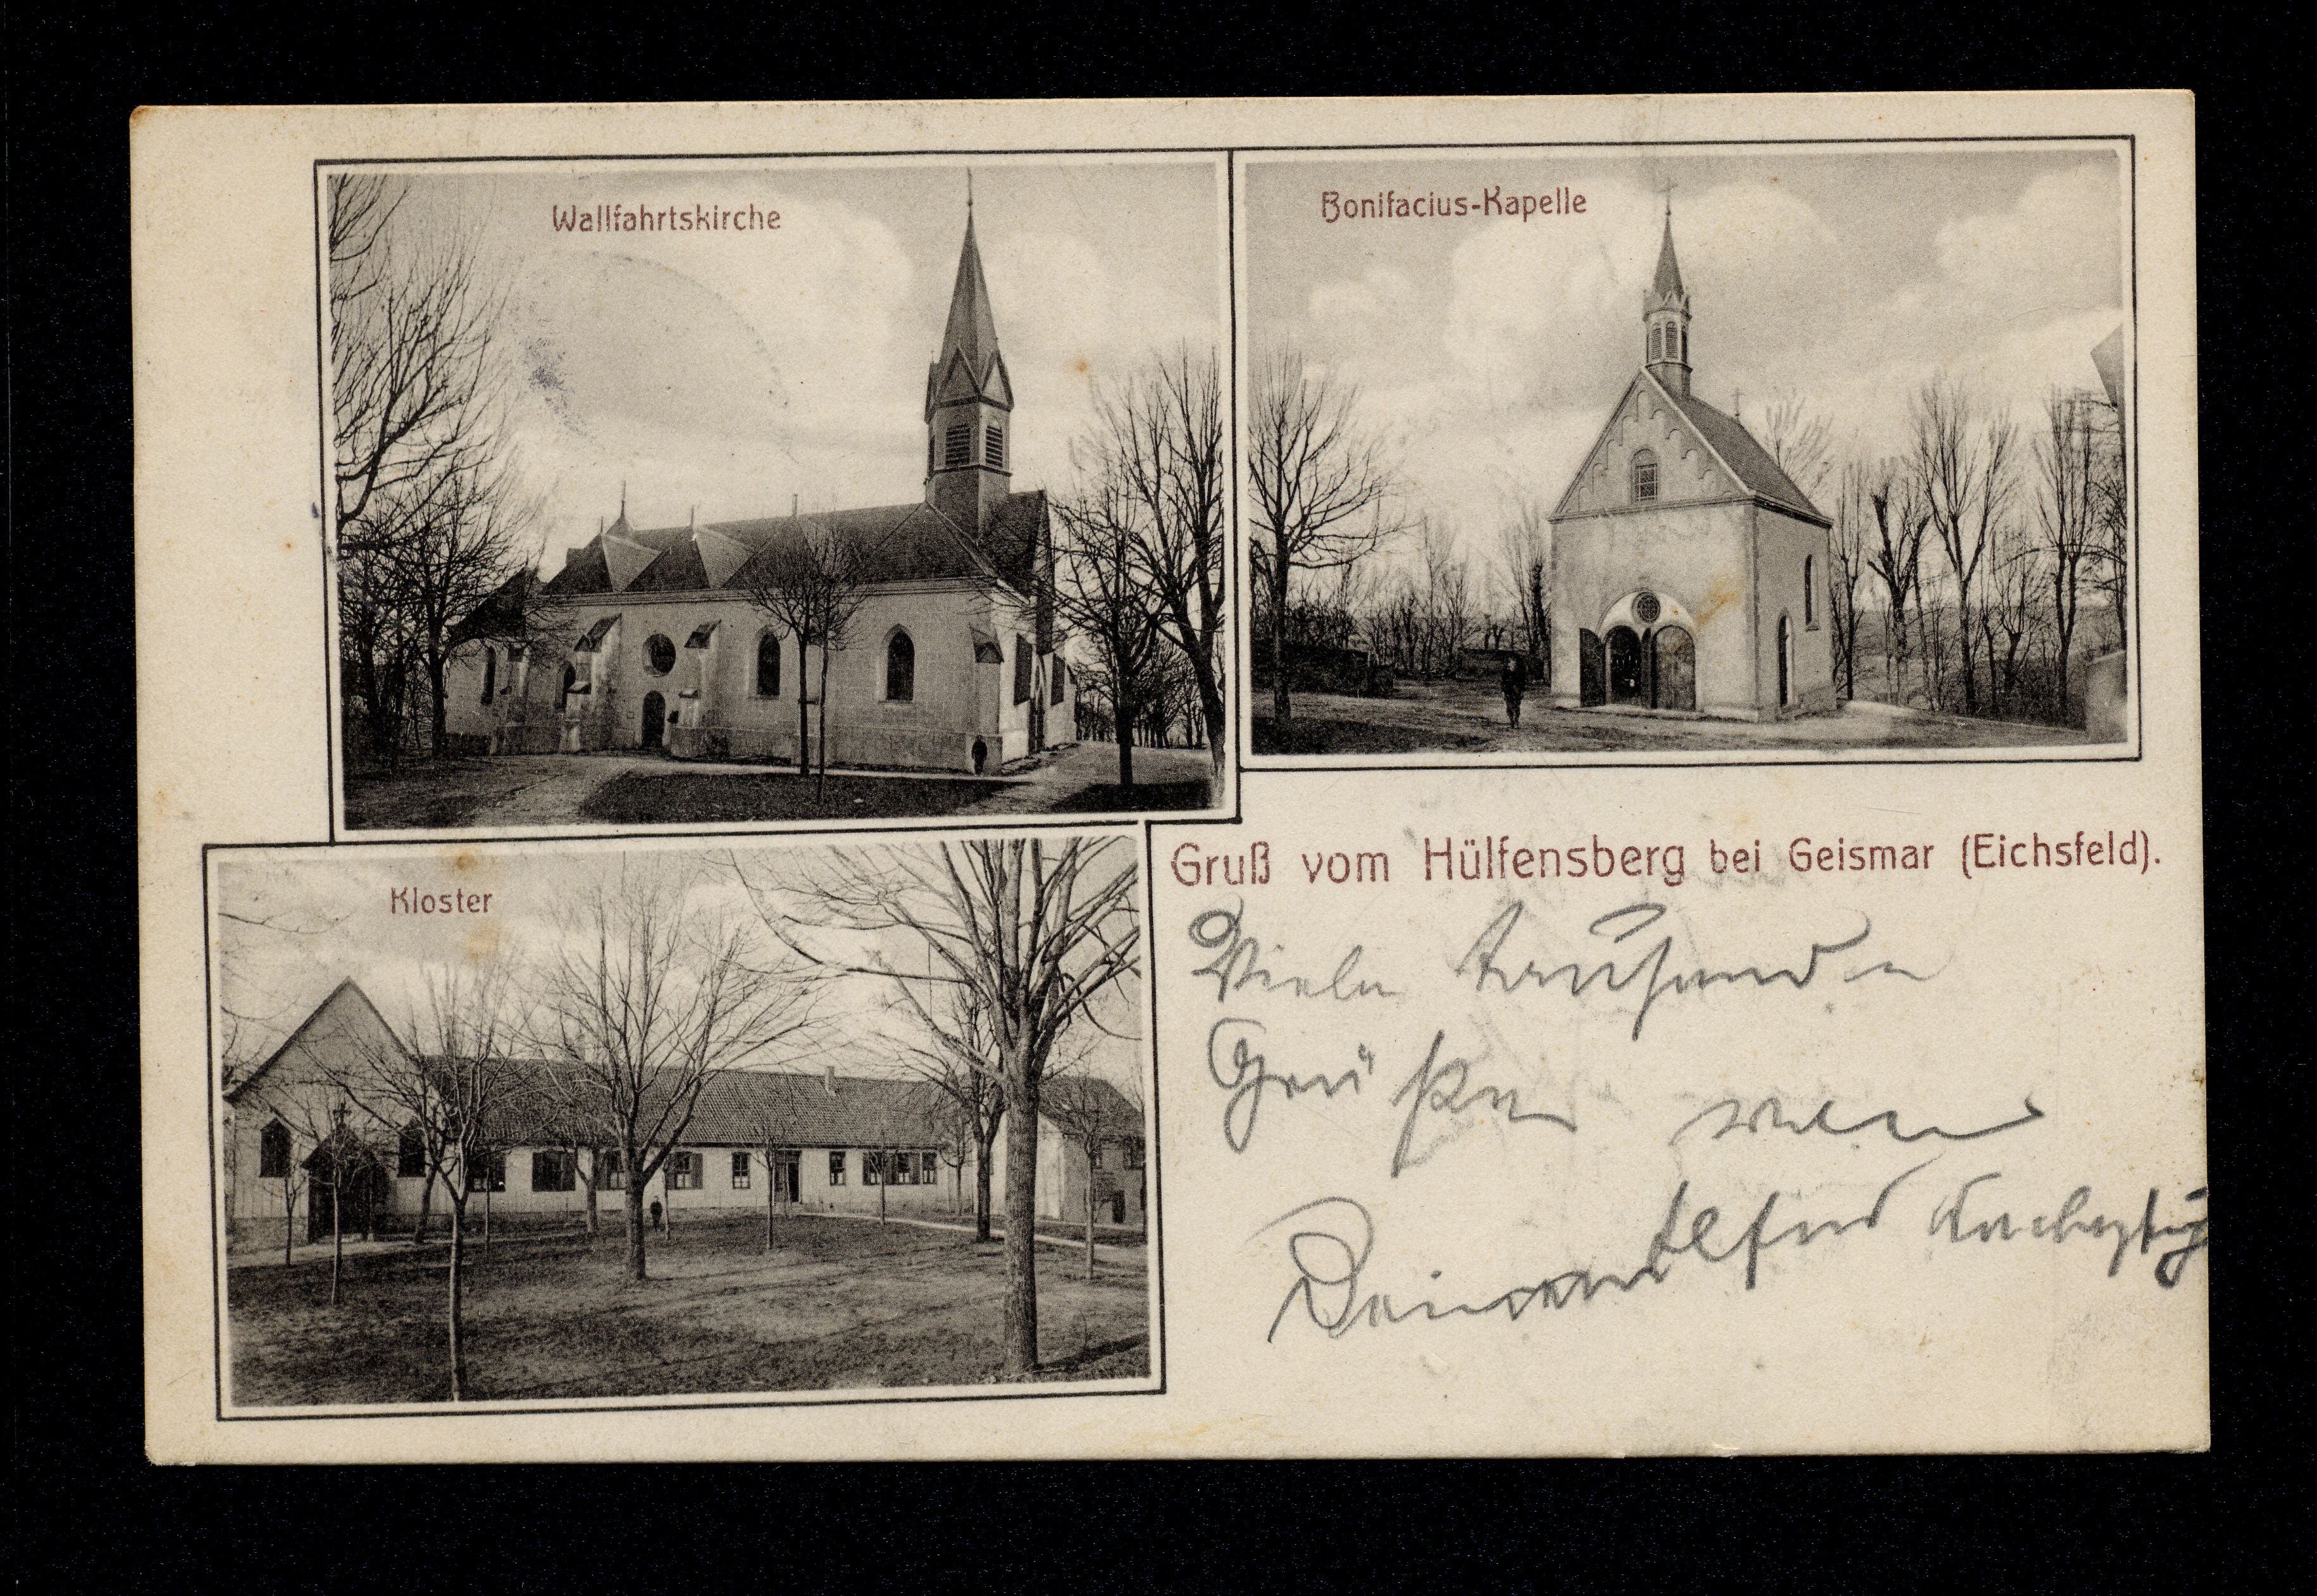 Wallfahrtskirche
Bonifacius-Kapelle
Kloster
Gruß vom Hülfensberg bei Geismar (Eichsfeld).
Viele tausende
Grüße